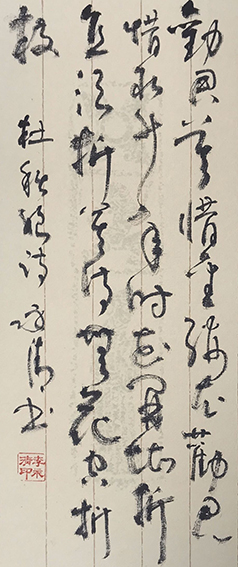 勸君莫惜金縷衣勸君
惜取少年时花開堪折
直须折莫待無花空折
枝 杜秋娘诗 清书